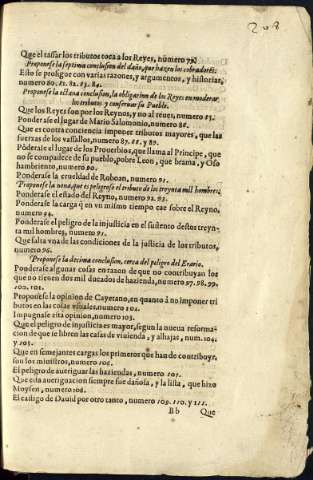 208
Que el tassar los tributos toca a los Reyes, numero 79.
Proponese la septima conclusion del daño, que hazen los cobradores.
Esto se prosigue con varias razones, y argumentos, y historias,
numero 80. 81. 82. 83. 84.
Proponese la octaua conclusion, la obligacion de los Reyes en moderar
los tributos y conseruar su Pueblo.
Que los Reyes son por los Reynos, y no al reues, numero 85.
Ponderase el lugar de Mario Salomonio, numero 86.
Que es contra conciencia imponer tributos mayores, que las
fuerzas de los vassallos, numero 87. 88. 89.
Pòderase el lugar de los Prouerbios, que llama al Principe, que
no se compadece de su pueblo, pobre Leon, que brama, y Oso
hambriento, numero 90.
Ponderase la crueldad de Roboan, numero 91.
Proponese la nona, que es peligroso el tributo de los treynta mil hombres,
Ponderase el estado del Reyno, numero 92. 93.
Ponderase la carga q̃ en vn mismo tiempo cae sobre el Reyno,
numero 94.
Ponderase el peligro de la injusticia en el sustento destos treyn-
ta mil hombres, numero 95.
Que falta vna de las condiciones de la justicia de los tributos,
numero 96.
Proponese la decima conclusion, cerca del peligro del Erario.
Ponderase algunas cosas en razon de que no contribuyan los
que no tienen dos mil ducados de hazienda, numero 97. 98. 99.
100. 101.
Proponese la opinion de Cayetano, en quanto à no imponer tri
butos en las cosas vsuales, numero 102.
Impugnase esta opinion, numero 103.
Que el peligro de injusticia es mayor, segun la nueua reforma-
cion de que se libren las casas de viuienda, y alhajas, num. 104
y 105.
Que en semejantes cargas los primeros que han de contribuyr,
son los ministros, numero 106.
El peligro de aueriguar las haziendas, numero 107.
Que esta aueriguacion siempre fue dañosa, y la lista, que hizo
Moysen, numero 108.
El castigo de Dauid por otro tanto, numero 109. 110. y 111.
Bb Que